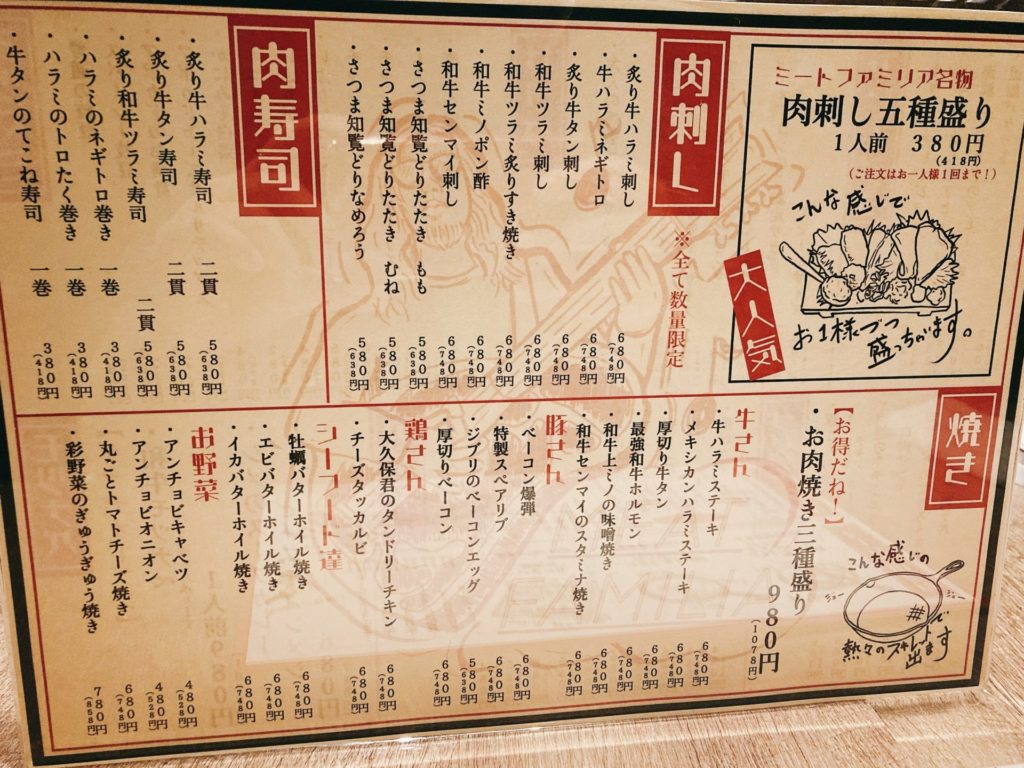 ミートファミリア名物
肉刺し五種盛り
1人前 380円
(418円)
(ご注文はお一人様1回まで!)
こんな感じで
お1様づつ
盛っちゃいます。
大人気
肉刺し
※全て数量限定
・炙り牛ハラミ刺し 680円(748円)
・牛ハラミネギトロ 680円(748円)
・炙り牛タン刺し 680円(748円)
・和牛ツラミ刺し 680円(748円)
・和牛ツラミ炙りすき焼き 680円(748円)
・和牛ミノポン酢 680円(748円)
・和牛センマイ刺し 680円(748円)
・さつま知覧どりたたき もも 580円(638円)
・さつま知覧どりたたき むね 580円(638円)
・さつま知覧どりなめろう 580円(638円)
肉寿司
・炙り牛ハラミ寿司 二貫 580円(638円)
・炙り牛タン寿司 二貫 580円(638円)
・炙り和牛ツラミ寿司 二貫 580円(638円)
・ハラミのネギトロ巻き 一巻 380円(418円)
・ハラミのトロたく巻き 一巻 380円(418円)
・牛タンのてこね寿司 一巻 380円(418円)
焼き
こんな感じの
ジュー
ジュー
熱々のスキレットで
出ます
【お得だね!】
・お肉焼き三種盛り 980円(1078円)
牛さん
・牛ハラミステーキ 680円(748円)
・メキシカンハラミステーキ 680円(748円)
・厚切り牛タン 680円(748円)
・最強和牛ホルモン 680円(748円)
・和牛上ミノの味噌焼き 680円(748円)
・和牛センマイのスタミナ焼き 680円(748円)
豚さん
・ベーコン爆弾 680円(748円)
・特製スペアリブ 680円(748円)
・ジブリのベーコンエッグ 580円(638円)
・厚切りベーコン 680円(748円)
鶏さん
・大久保君のタンドリーチキン 680円(748円)
・チーズタッカルビ 680円(748円)
シーフード達
・牡蠣バターホイル焼き 680円(748円)
・エビバターホイル焼き 680円(748円)
・イカバターホイル焼き 680円(748円)
お野菜
・アンチョビキャベツ 480円(528円)
・アンチョビオニオン 480円(528円)
・丸ごとトマトチーズ焼き 680円(748円)
・彩野菜のぎゅうぎゅう焼き 780円(858円)
MEAT
FAMILIA